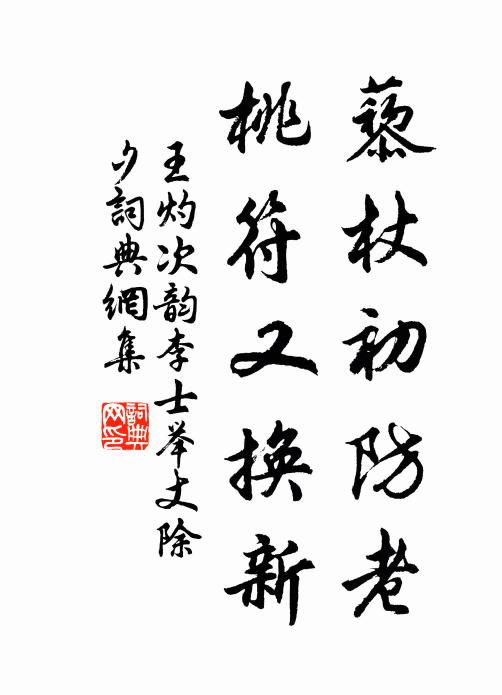 藜杖初防老
桃符又换新
王灼次韵李士举丈除
夕詞典網集
詞典网印